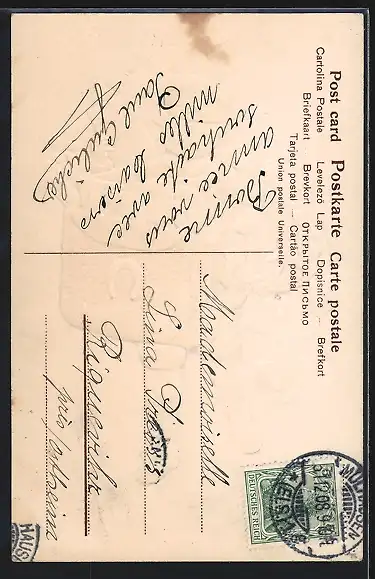 Post card Postkarte Carte postale
Cartolina Postale Levelező Lap Dopisnice – Brefkort
Briefkaart Brevkort ОТКРЫТОЕ ПИСЬМО
Tarjeta postal – Cartão postal
Union postale Universelle.
Bonne
année vous
souhaite avec
milles baisers
Paul
Mademoiselle
Lina
près
DEUTSCHES REICH
31.12.08.9
(ELS.)
HAUS